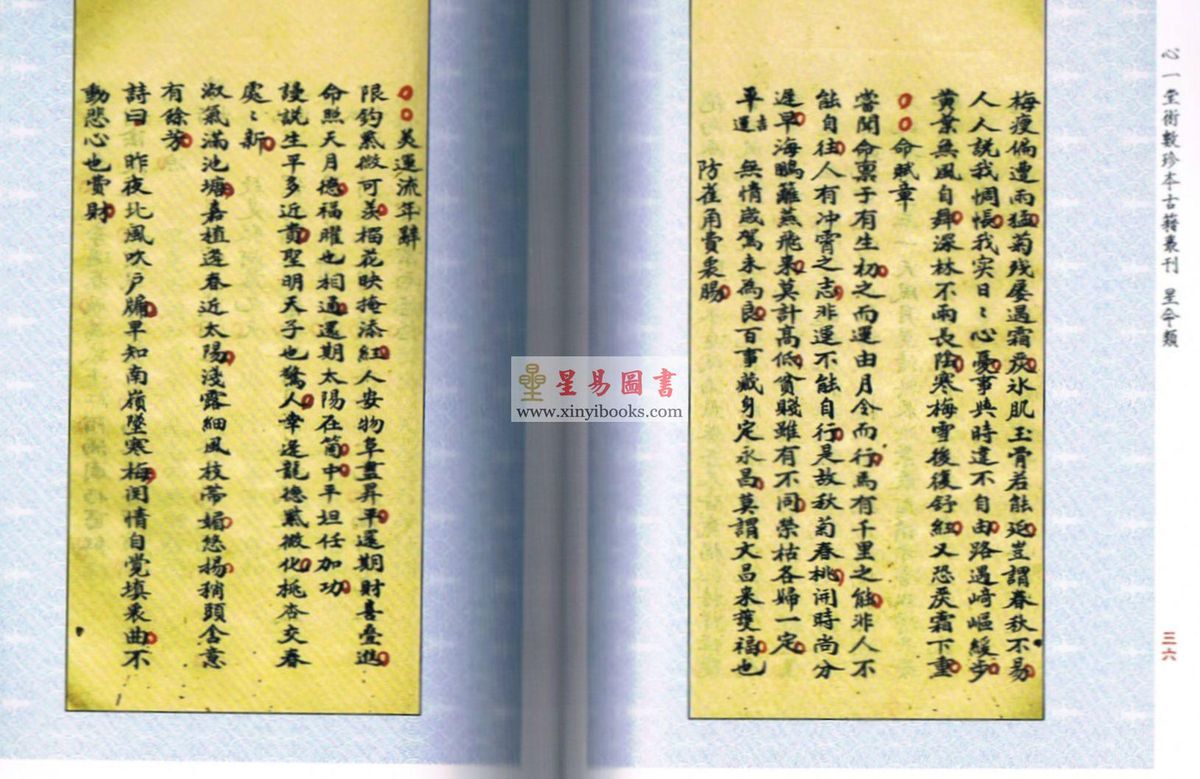 心一堂術數珍本古籍叢刊 星命類
三六
梅瘦偏遭雨猛菊殘屢遇霜戾氷肌玉骨若能延豈謂春秋不易
人人說我惆悵我实日〻心憂事與時違不自由路遇崎嶇緩步
黄葉無風自舞深林不雨長陰寒梅雪後復舒紅又恐戾霜下重
○○命賦章
嘗聞命禀于有生初之而運由月令而行馬有千里之能非人不
能自往人有冲霄之志非運不能自行是故秋菊春桃開時尚分
遲早海鵬籬燕飛果莫計高低貧賤雖有不同榮枯各歸一定
平運吉 無情歲駕未為良百事藏身定永昌莫謂文昌来護福也
防雀角費衷賜
○○美運流年辭
限鈞紫微可羡榴花映掩添紅人安物阜盡昇平還期財喜叠進
命照天月德福曜也相通還期太陽在箇中平坦任加功
謾説生平多近貴聖明天子也驚人幸逢龍德紫微化桃杏交春
處〻新
淑氣滿池塘嘉植逢春近太陽淺露細風枝蒂媚悠揚稍頭含意
有餘芳
詩曰 昨夜北風吹戶牖早知南嶺墜寒梅閑情自覺填衷曲不
動悲心也賞財
星易圖書
www.xinyibooks.com